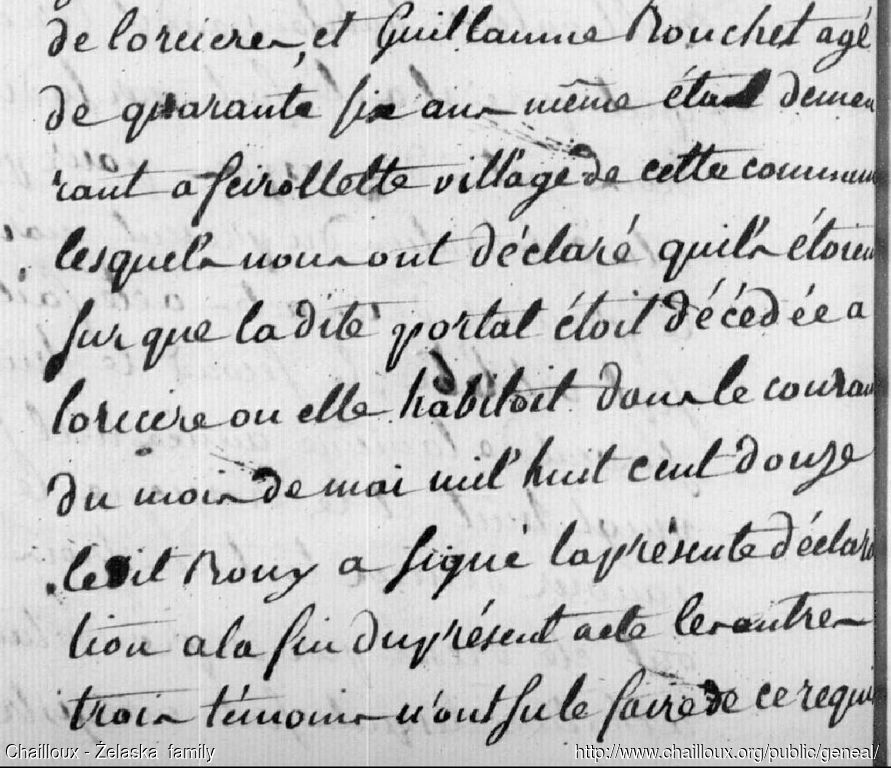 de lorcieres, et Guillaume Rouchet agé
de quarante six ans même état demeu
rant a feirollette village de cette commune
lesquels nous ont déclaré quils étoient
sur que la dite portal étoit décédée a
lorciere ou elle habitoit dans le couran
du mois de mai mil huit cent douze
ledit Roux a signé la présente déclara
tion a la fin du présent acte les autres
trois témoins n'ont su le faire de ce requi
Chailloux - Żelaska family
http://www.chailloux.org/public/geneal/